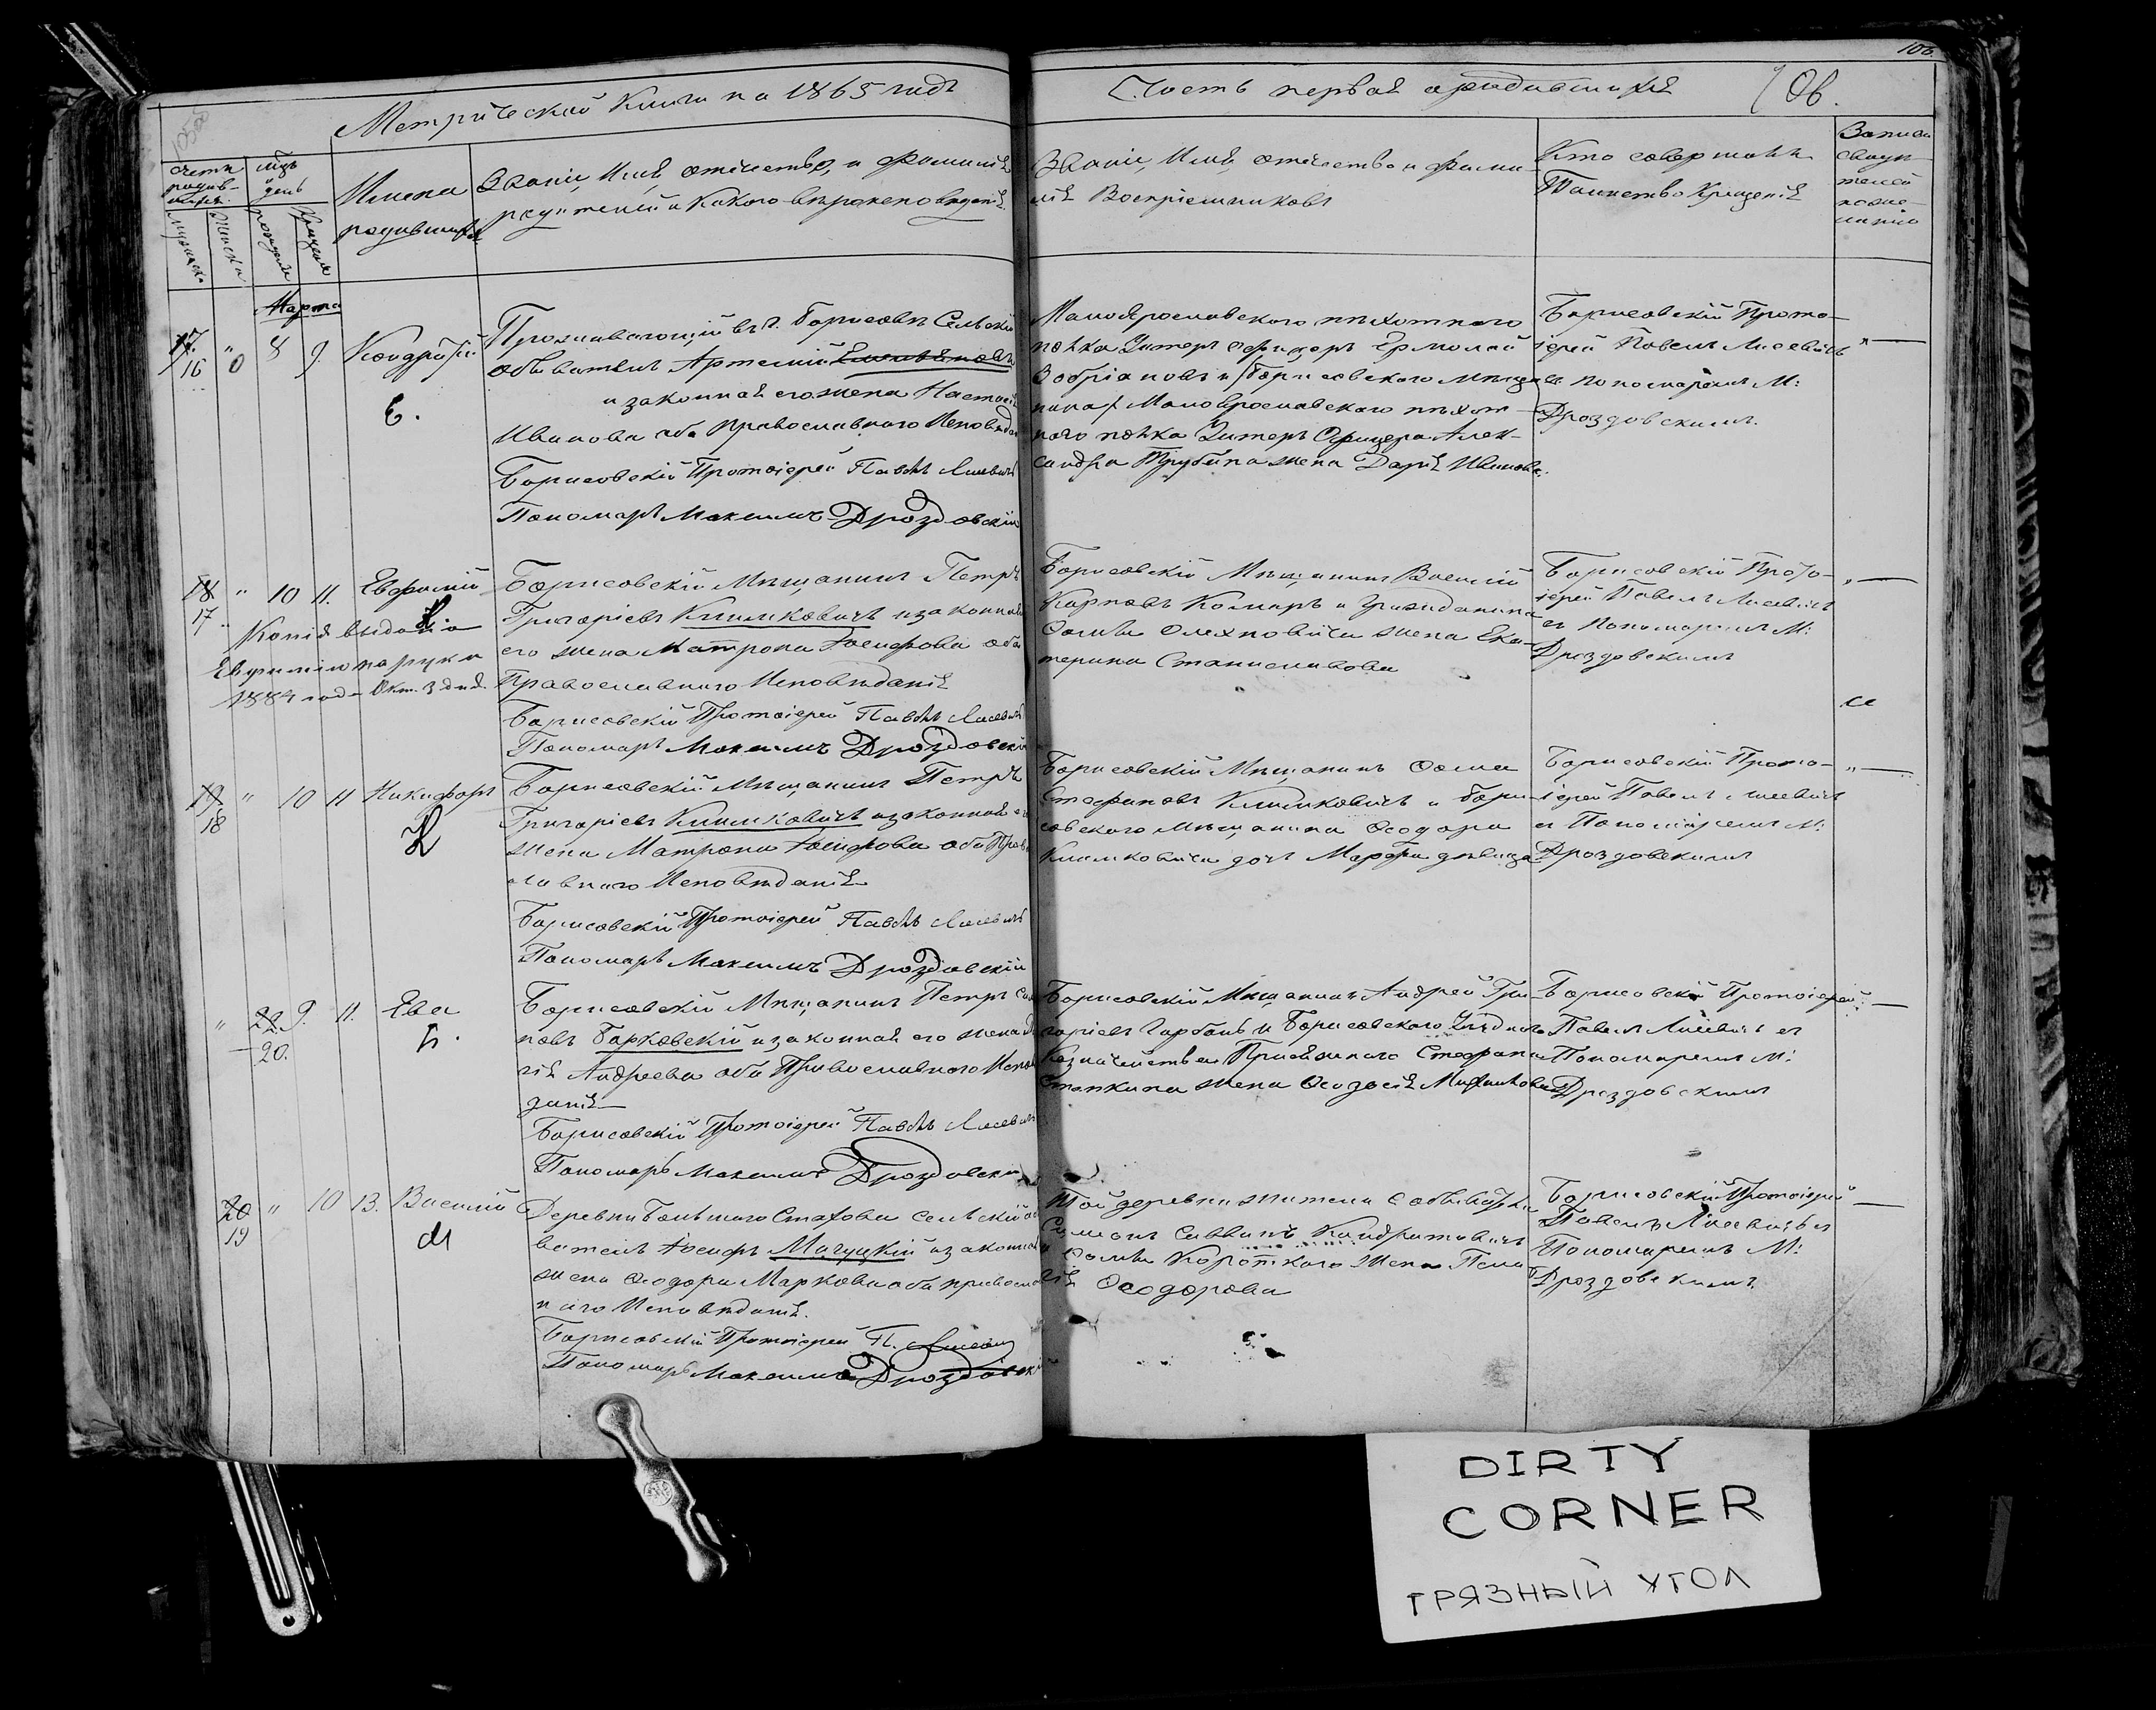 106.
Метрической Книги на 1865 годъ
Часть первая о родившихся
106.
Счетъ родив-шихся.
Мужеска
Женска
Мцъ и день
рожденія
Крещенія
Имена
родившихся
Званіе, Имя, отчество, и фамилія
родителей и какого вѣроисповѣданія.
Званіе, Имя, отчество и фами-
лія Воспріемниковъ
Кто совершалъ
Таинство Крещенія
Марта
17. " 8 9. Кондратій
16 0
Е.
Проживающій въ г. Борисовѣ Сельскій
обыватель Артемій
и законная его жена Настасія
Иванова оба православнаго Исповѣдан
Борисовскій Протоіерей Павелъ Лисевичъ
Пономарь Максимъ Дроздовскій
Малоярославскаго пѣхотнаго
полка Унтеръ офицеръ Ермолай
и Борисовскаго мѣща
нина Малоярославскаго пѣхот-
наго полка Унтеръ Офицера Алек-
сандра Трубина жена Дарія Иванова.
Борисовскій Прото-
іерей Павелъ Лисевичъ
съ пономаремъ М:
Дроздовскимъ.
18 " 10 11. Евфимій
17
К.
Копія выдана
Евфимію на руки
1884 года Окт. 3 дня.
Борисовскій Мѣщанинъ Петръ
Григоріевъ Климковичъ и законная
его жена Матрона Іосифова оба
Православнаго Исповѣданія
Борисовскій Протоіерей Павелъ Лисевичъ
Пономарь Максимъ Дроздовскій
Борисовскій Мѣщанинъ Василій
Карповъ Комаръ и Гражданина
Ѳомы Олехновича жена Ека-
терина Станиславова
Борисовскій Прото-
іерей Павелъ Лисевичъ
съ Пономаремъ М:
Дроздовскимъ
19 " 10 11 Никифоръ
18
К
Борисовскій Мѣщанинъ Петръ
Григоріевъ Климковичъ и законная е
жена Матрона Іосифова оба Прав
лавнаго Исповѣданія
Борисовскій Протоіерей Павелъ Лисевичъ
Пономарь Максимъ Дроздовскій
Борисовскій Мѣщанинъ Ѳома
Стефановъ Климковичъ и Бори-
совскаго Мѣщанина Ѳеодора
Климковича дочь Марфа дѣвица
Борисовскій Прото-
іерей Павелъ Лисевичъ
съ Пономаремъ М:
Дроздовскимъ
" 22 9. 11. Ева
20.
Б.
Борисовскій Мѣщанинъ Петръ
новъ Барковскій и законная его жена
гія Андреева оба Православнаго Испов
данія
Борисовскій Протоіерей Павелъ Лисевичъ
Пономарь Максимъ Дроздовскій
Борисовскій Мѣщанинъ Андрей Гри-
горіевъ Гарбанъ и Борисовскаго Уѣзднаго
Казначейства Присяжнаго Стефана
жена Ѳеодосія
Борисовскій Протоіерей
Павелъ Лисевичъ съ
Пономаремъ М:
Дроздовскимъ
20 " 10 13. Василій
19
М
Деревни Большаго Стахова сельскій об
ватель Іосифъ Магуцкій и законная
жена Ѳеодора Маркова оба православ
наго Исповѣданія.
Борисовскій Протоіерей П. Лисевичъ
Пономарь Максимъ Дроздовскій
Той деревни жители
Симонъ Саввинъ Кондратовичъ
и Ѳомы Короткаго жена Пела
гія Ѳеодорова
Борисовскій Протоіерей
Павелъ Лисевичъ съ
Пономаремъ М:
Дроздовскимъ.
DIRTY
CORNER
ГРЯЗНЫЙ УГОЛ